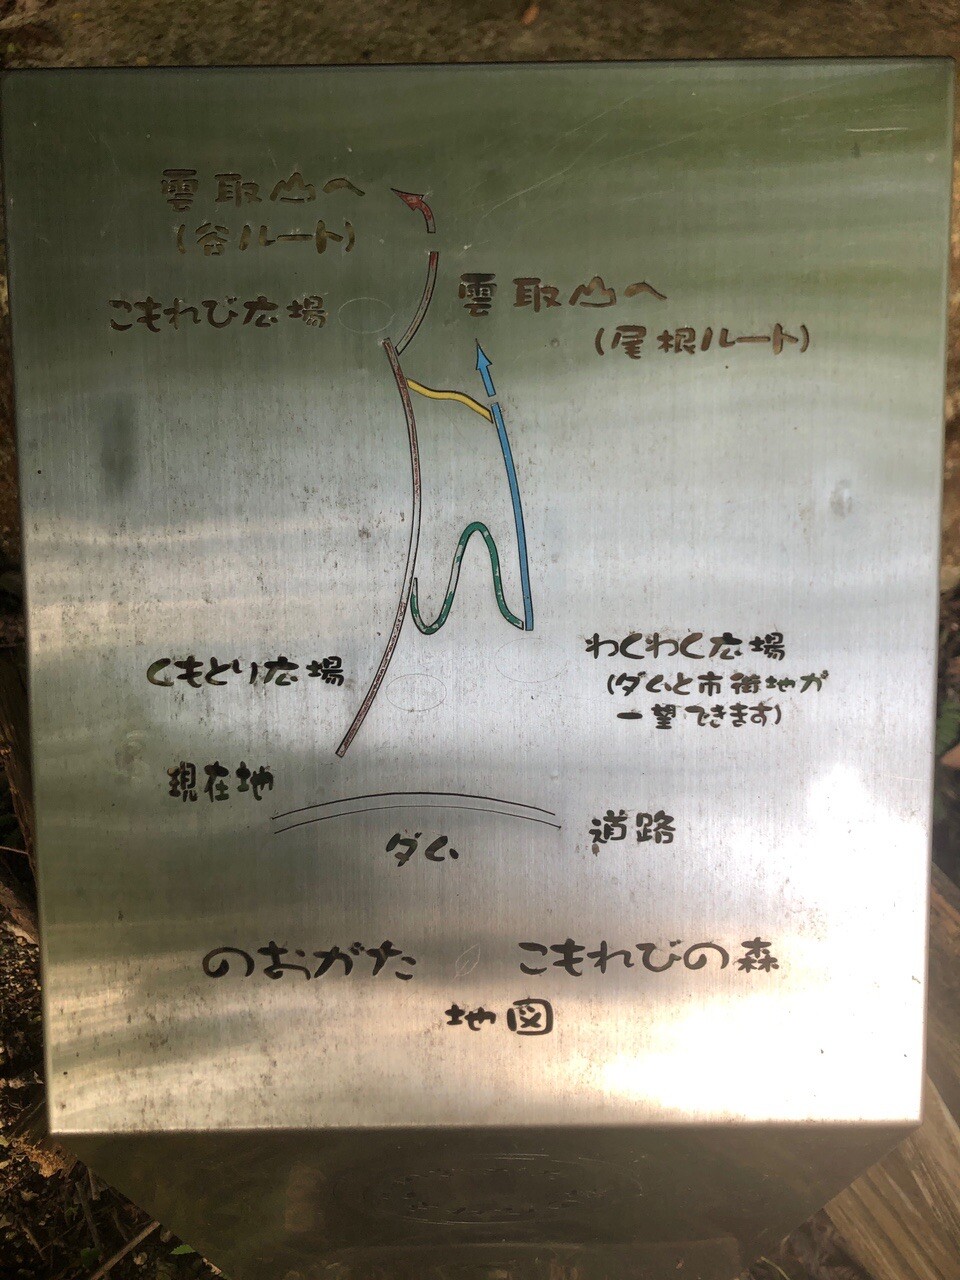 雲取山へ
(谷ルート)
こもれび広場
雲取山へ
(尾根ルート)
くもとり広場
わくわく広場
(ダムと市街地が
一望できます)
現在地
ダム
道路
のおがた こもれびの森
地図